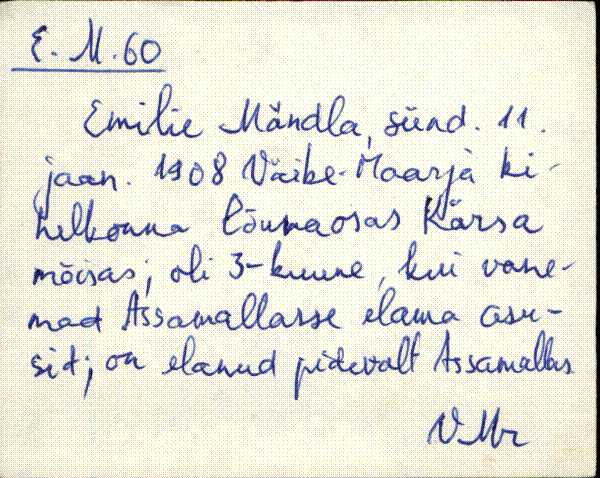 E. M. 60
Emilie Mändla, sünd. 11.
jaan. 1908 Väike-Maarja ki-
helkonna lõunaosas Kärsa
mõisas; oli 3-kuune, kui vane-
mad Assamallasse elama asu-
sid; on elanud pidevalt Assamallas
VMr